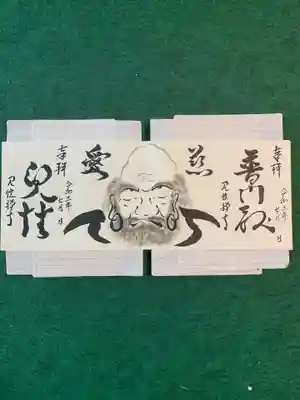 奉拝
令和三年七月 日
普門殿
見性禅寺
慈
愛
奉拝
令和三年七月 日
見性
見性禅寺